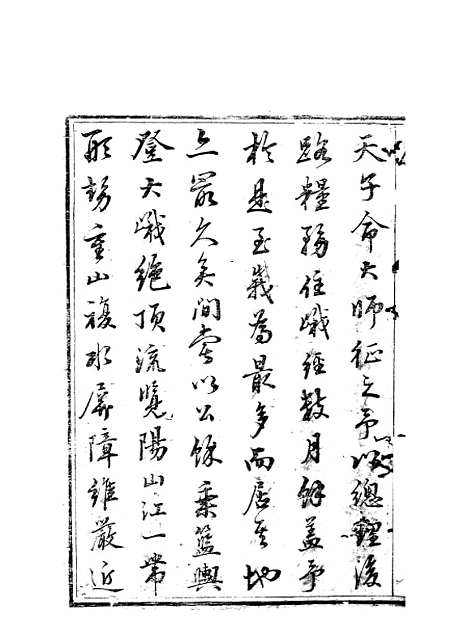 天子命大師征之予以總理後
路糧務住峨經數月餘蓋予
於是至峩為最多而居其地
亦最久矣間嘗以公餘乘籃輿
登大峨絕頂流覽陽山江一帶
形勢重山複水屏障雖嚴近